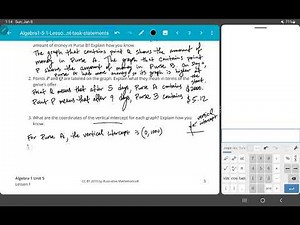 1:14 Sun, Jan 5
Algebra1-5-1-Lesso...nt-task-statements
amount of money in Purse B? Explain how you know.
The graph that contains point Q shows the amount
of money in Purse A. The graph that contains point
P shows the amount of money in Purse B. On Day 0,
Purse A had more money so its graph is higher at the start
2. Points P and Q are labeled on the graph. Explain what they mean in terms of the
genie's offer.
Point Q means that after 5 days, Purse A contains $2000.
Point P means that after 9 days, Purse B contains $5.12
3. What are the coordinates of the vertical intercept for each graph? Explain how you
know.
vertical
intercept
For Purse A, the vertical intercept is (0, 1000)
Algebra 1 Unit 5
Lesson 1
CC BY 2019 by Illustrative Mathematics®